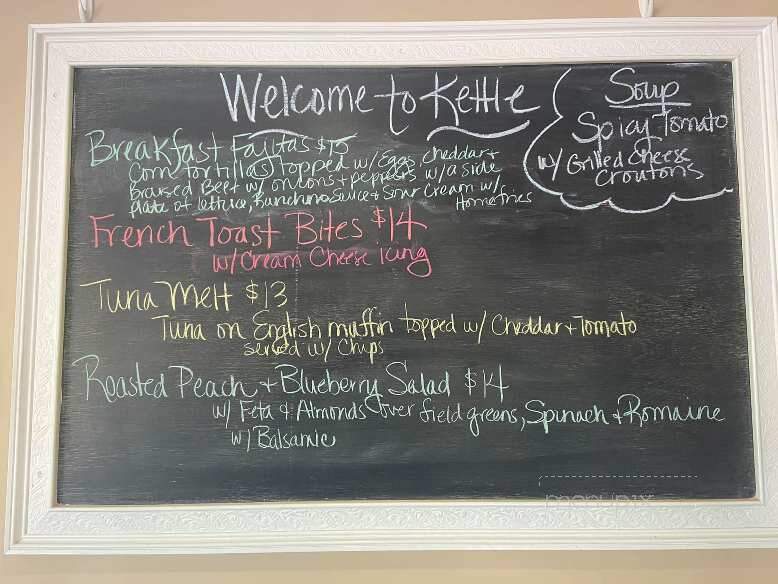 Welcome to Kettle
Soup
Spicy Tomato
w/ Grilled Cheese
Croutons
Breakfast Fajitas $15
Corn tortilla(s) topped w/ Eggs, cheddar +
Braised Beef w/ onions + peppers w/ a side
plate of lettuce, Ranchero Sauce + Sour Cream w/
Homefries
French Toast Bites $14
w/ Cream Cheese icing
Tuna Melt $13
Tuna on English muffin topped w/ Cheddar + Tomato
served w/ Chips
Roasted Peach + Blueberry Salad $14
w/ Feta & Almonds over field greens, Spinach + Romaine
w/ Balsamic
menupix